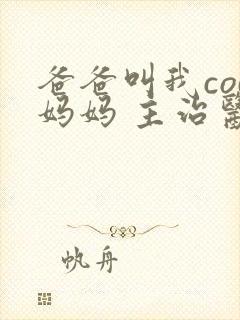 爸爸叫我co
妈妈 主治
帆舟